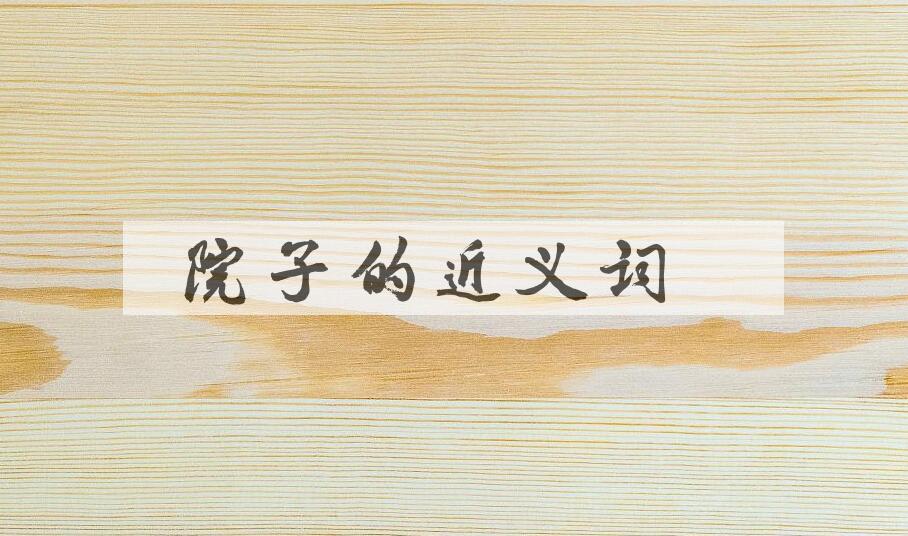 院子的近义词